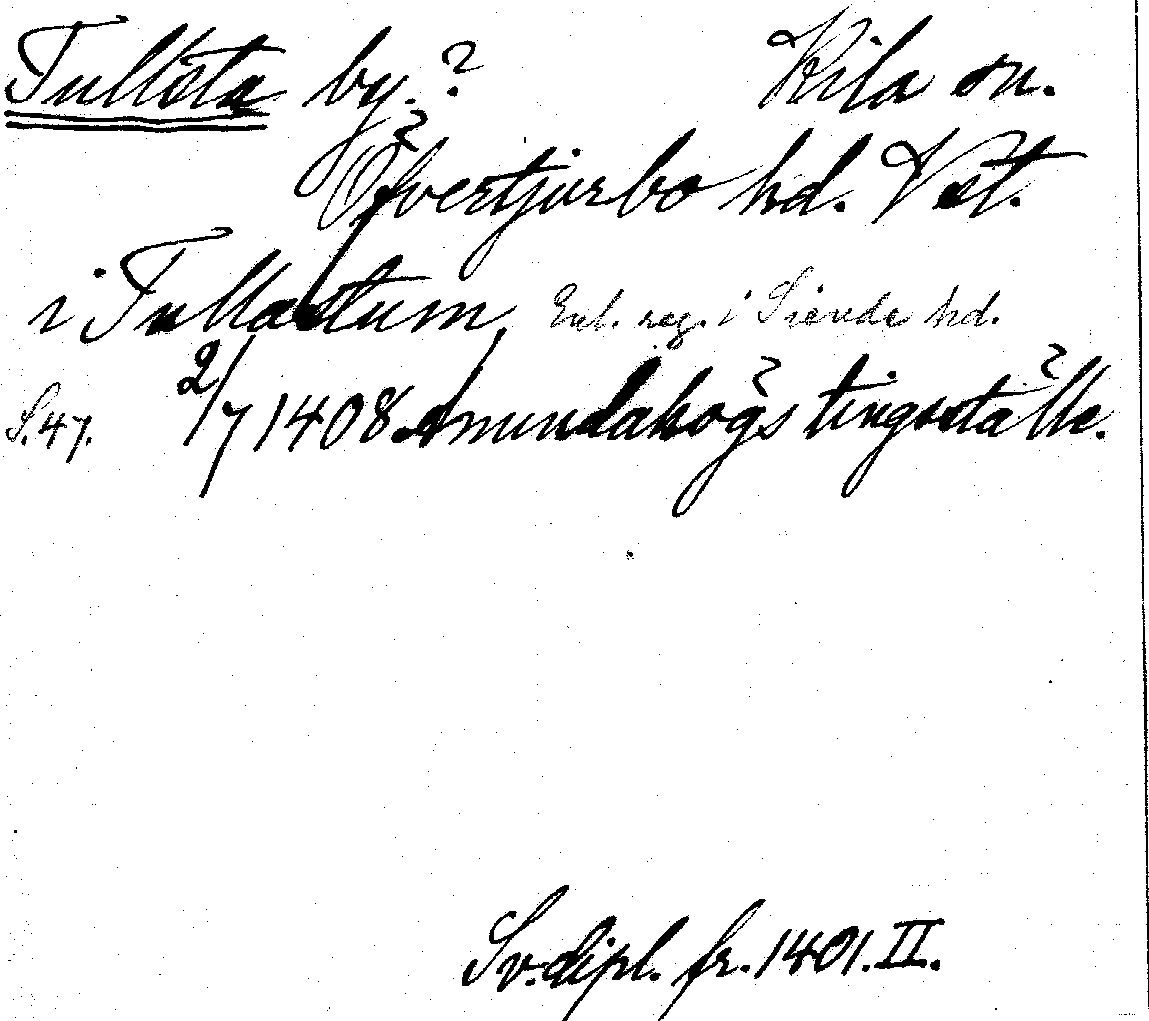 Tullsta by.? Kila sn.
Öfvertjurbo hd. Vst.
i Tullastum, Enl. reg. i Siende hd.
S. 47. 2/7 1408 Amundahögs tingställe.
Sv. dipl. fr. 1401. II.